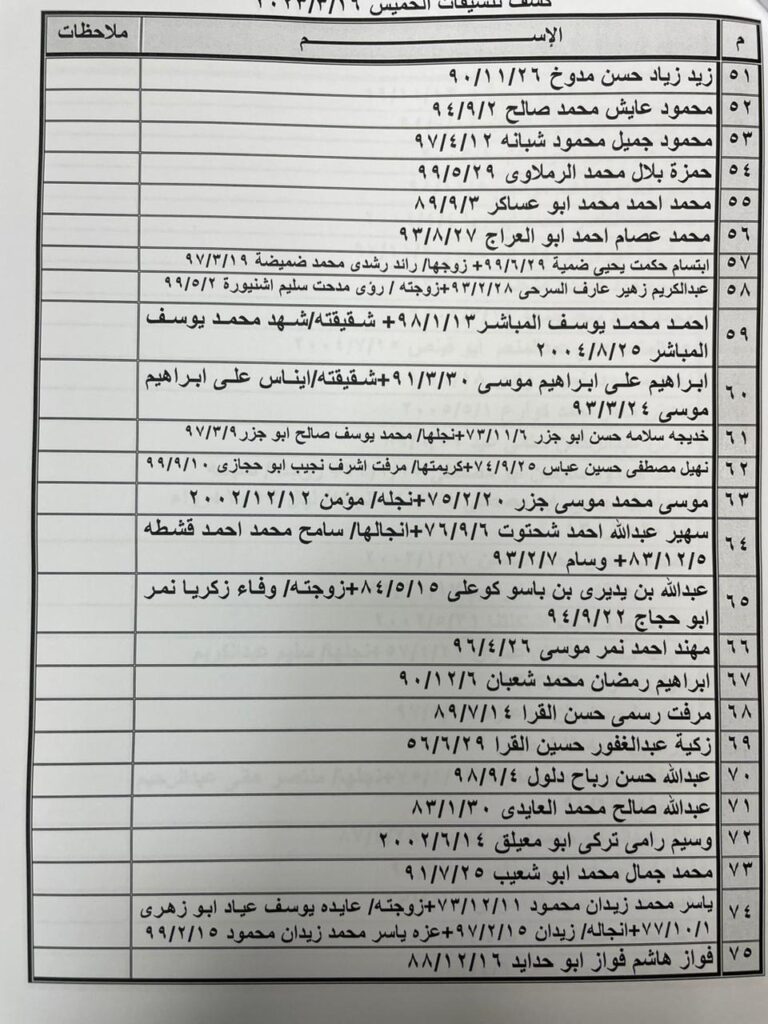 كشف تنسيقات الخميس ٢٠٢٣/٣/١٦
م الإســـم ملاحظات
٥١ زيد زياد حسن مدوخ ٩٠/١١/٢٦
٥٢ محمود عايش محمد صالح ٩٤/٩/٢
٥٣ محمود جميل محمود شبانه ٩٧/٤/١٢
٥٤ حمزة بلال محمد الرملاوى ٩٩/٥/٢٩
٥٥ محمد احمد محمد ابو عساكر ٨٩/٩/٣
٥٦ محمد عصام احمد ابو العراج ٩٣/٨/٢٧
٥٧ ابتسام حكمت يحيى ضمية ٩٩/٦/٢٩+ زوجها/ رائد رشدى محمد ضميضة ٩٧/٣/١٩
٥٨ عبدالكريم زهير عارف السرحى ٩٣/٢/٢٨+زوجته / رؤى مدحت سليم اشنيورة ٩٩/٥/٢
٥٩ احمد محمد يوسف المباشر٩٨/١/١٣+ شقيقته/شهد محمد يوسف
المباشر ٢٠٠٤/٨/٢٥
٦٠ ابراهيم على ابراهيم موسى ٩١/٣/٣٠+شقيقته/ايناس على ابراهيم
موسى ٩٣/٣/٢٤
٦١ خديجه سلامه حسن ابو جزر ٧٣/١١/٦+نجلها/ محمد يوسف صالح ابو جزر٩٧/٣/٩
٦٢ نهيل مصطفى حسين عباس ٧٤/٩/٢٥+كريمتها/ مرفت اشرف نجيب ابو حجازى ٩٩/٩/١٠
٦٣ موسى محمد موسى جزر ٧٥/٢/٢٠+نجله/ مؤمن ٢٠٠٢/١٢/١٢
٦٤ سهير عبدالله احمد شحتوت ٧٦/٩/٦+انجالها/ سامح محمد احمد قشطه
٨٣/١٢/٥+ وسام ٩٣/٢/٧
٦٥ عبدالله بن يديرى بن باسو كوعلى ٨٤/٥/١٥+زوجته/ وفاء زكريا نمر
ابو حجاج ٩٤/٩/٢٢
٦٦ مهند احمد نمر موسى ٩٦/٤/٢٦
٦٧ ابراهيم رمضان محمد شعبان ٩٠/١٢/٦
٦٨ مرفت رسمى حسن القرا ٨٩/٧/١٤
٦٩ زكية عبدالغفور حسين القرا ٥٦/٦/٢٩
٧٠ عبدالله حسن رباح دلول ٩٨/٩/٤
٧١ عبدالله صالح محمد العايدى ٨٣/١/٣٠
٧٢ وسيم رامى تركى ابو معيلق ٢٠٠٢/٦/١٤
٧٣ محمد جمال محمد ابو شعيب ٩١/٧/٢٥
٧٤ ياسر محمد زيدان محمود ٧٣/١٢/١١+زوجته/ عايده يوسف عياد ابو زهرى
٧٧/١٠/١+انجاله/ زيدان ٩٧/٢/١٥+عزه ياسر محمد زيدان محمود ٩٩/٢/١٥
٧٥ فواز هاشم فواز ابو حدايد ٨٨/١٢/١٦